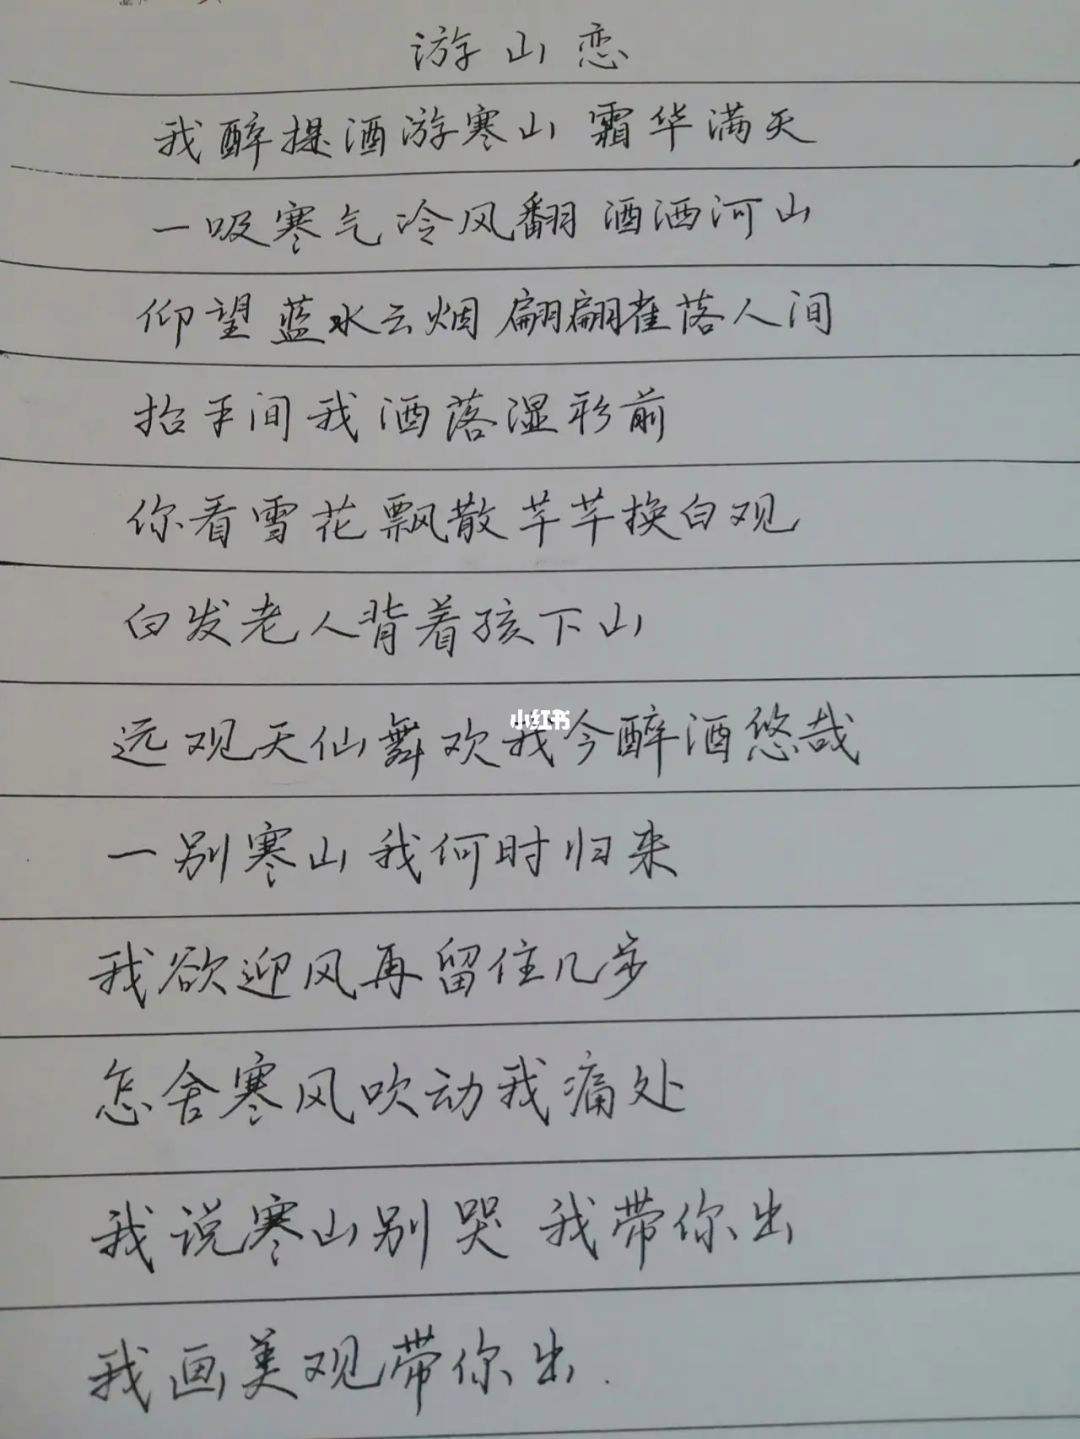 游山恋
我醉提酒游寒山 霜华满天
一吸寒气冷风翻 酒洒河山
仰望蓝水云烟 翩翩雀落人间
抬手间我洒落湿衫前
你看雪花飘散芊芊换白观
白发老人背着孩下山
远观天仙舞欢我今醉酒悠哉
小红书
一别寒山我何时归来
我欲迎风再留住几步
怎舍寒风吹动我痛处
我说寒山别哭 我带你出
我画美观带你出.